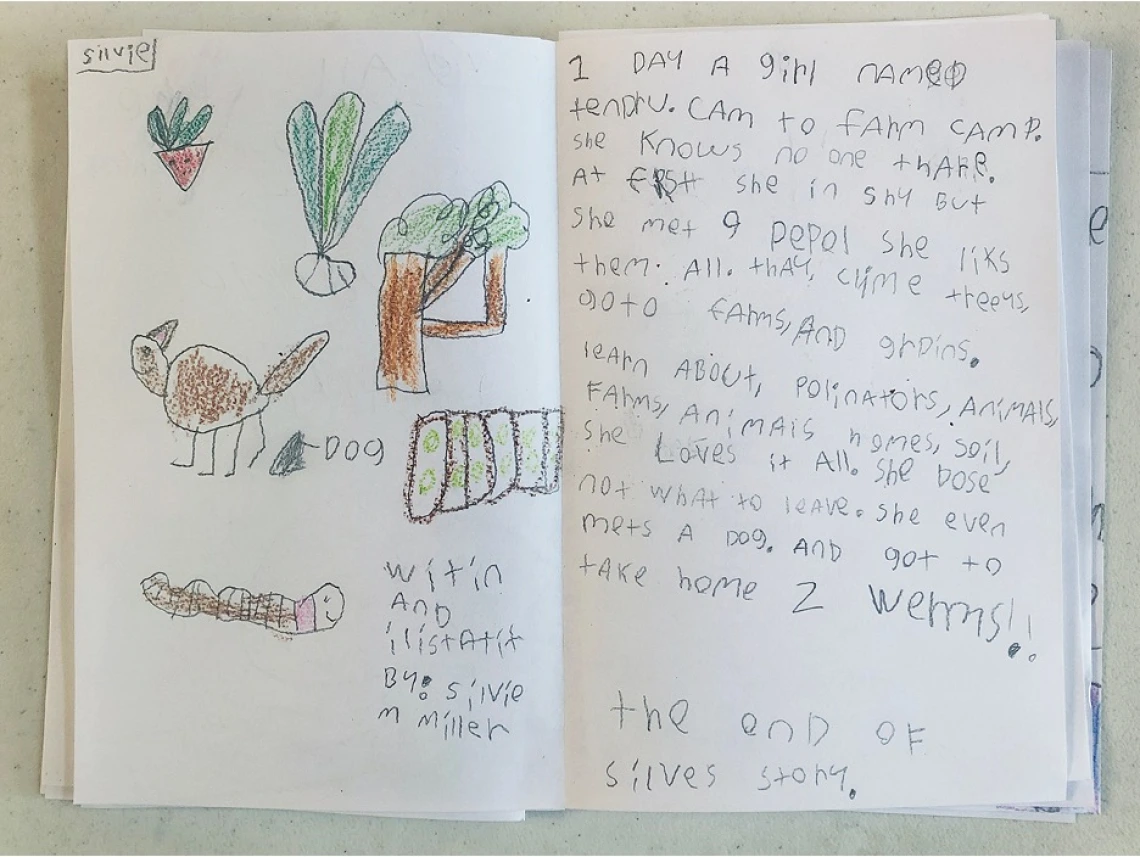 silvie
DOG
witin
AnD
ilistAtit
By: silvie
m miller
1 DAY A girl nameD
tenDru. CAm to fArm CAmp.
she knows no one thAre.
At first she in shy But
she met 9 pepol she liks
them. All. thAy, clyme treeys,
goto fArms, AnD grDins.
leArn ABOut, polinAtors, AnimAls,
FArms, AnimAls homes, soil,
she Loves it All. she Dose
not whAt to leAve. she even
mets A DOg. AnD got to
tAke home 2 werms!!
the enD OF
silves story.